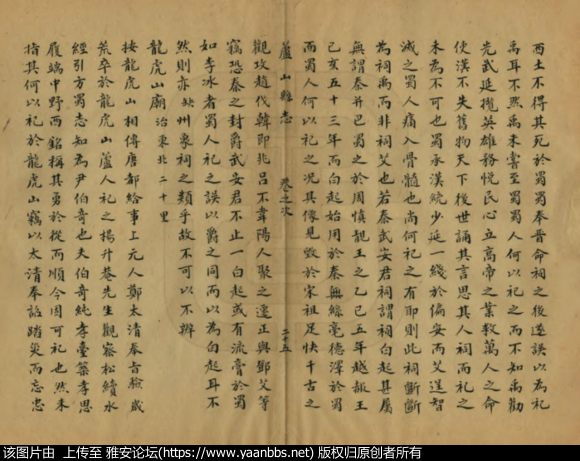 西土不得其死於蜀蜀奉晉命祠之後遂誤以為祀
禹耳不然禹未嘗至蜀蜀人何以祀之而不知禹勳
先武延攬英雄務悅民心立高帝之業救萬人之命
使漢不失舊物天下後世誦其言思其人祠而祀之
未為不可也蜀承漢統少延一綫於偏安而艾逞智
滅之蜀人痛入骨髓也尚何祀之有即則此祠斷斷
為祠禹而非祠艾也若秦武安君祠謂祠白起甚屬
無謂秦并巴蜀之於周慎靚王之乙巳五年越赧王
己亥五十三年而白起始用於秦無絲毫德澤於蜀
而蜀人何以祀之况其像見毀於宋祖足快千古之
蘆山縣志
卷之次
二十五
觀攻趙伐韓即兆呂不韋陽人聚之遷正與鄧艾等
竊恐秦之封爵武安君不止一白起或有流膏於蜀
如李冰者蜀人祀之誤以爵之同而以為白起耳不
然則亦缺州象祠之類乎故不可以不辨
龍虎山廟 治東北二十里
按龍虎山相傳唐都給事上元人鄭太清奉旨臉戚
荒卒於龍虎山蘆人祀之楊升菴先生觀察松續水
經引方蜀志知為尹伯奇也夫伯奇純孝臺築孝思
履端中野西銘稱其勇於從而順令固可祀也然未
指其何以祀於龍虎山竊以太清奉詔踏災而忘忠
该图片由 上传至 雅安论坛(https://www.yaanbbs.net) 版权归原创者所有